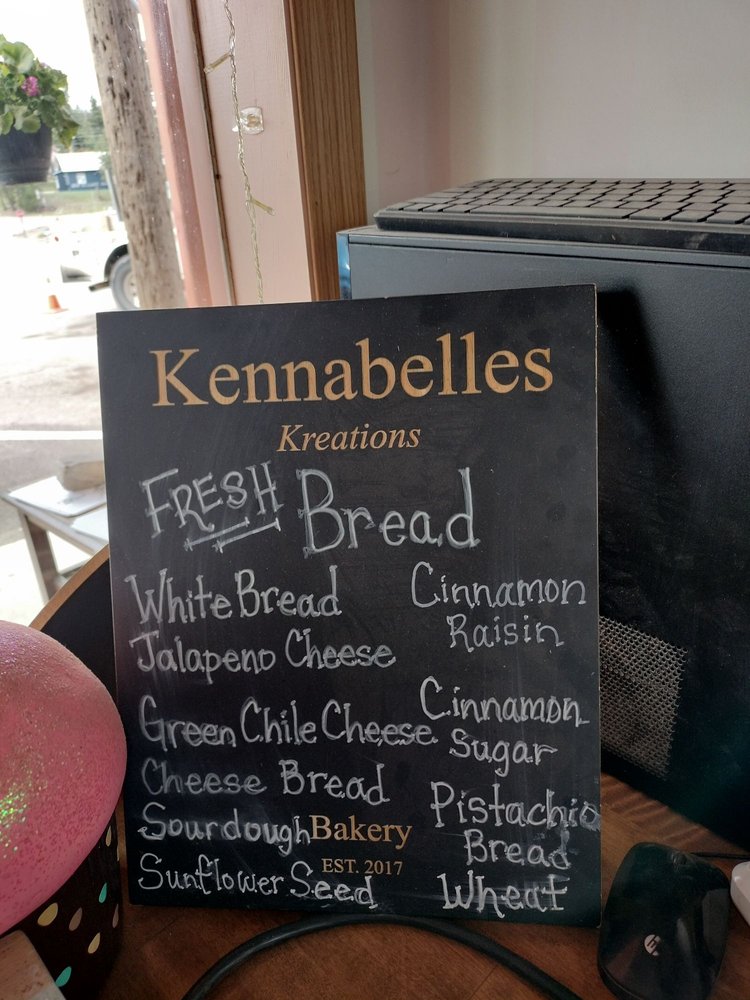 Kennabelles
Kreations
FRESH Bread
White Bread
Jalapeno Cheese
Green Chile Cheese
Cheese Bread
Sourdough
Sunflower Seed
Cinnamon
Raisin
Cinnamon
Sugar
Pistachio
Bread
Wheat
Bakery
EST. 2017
hp